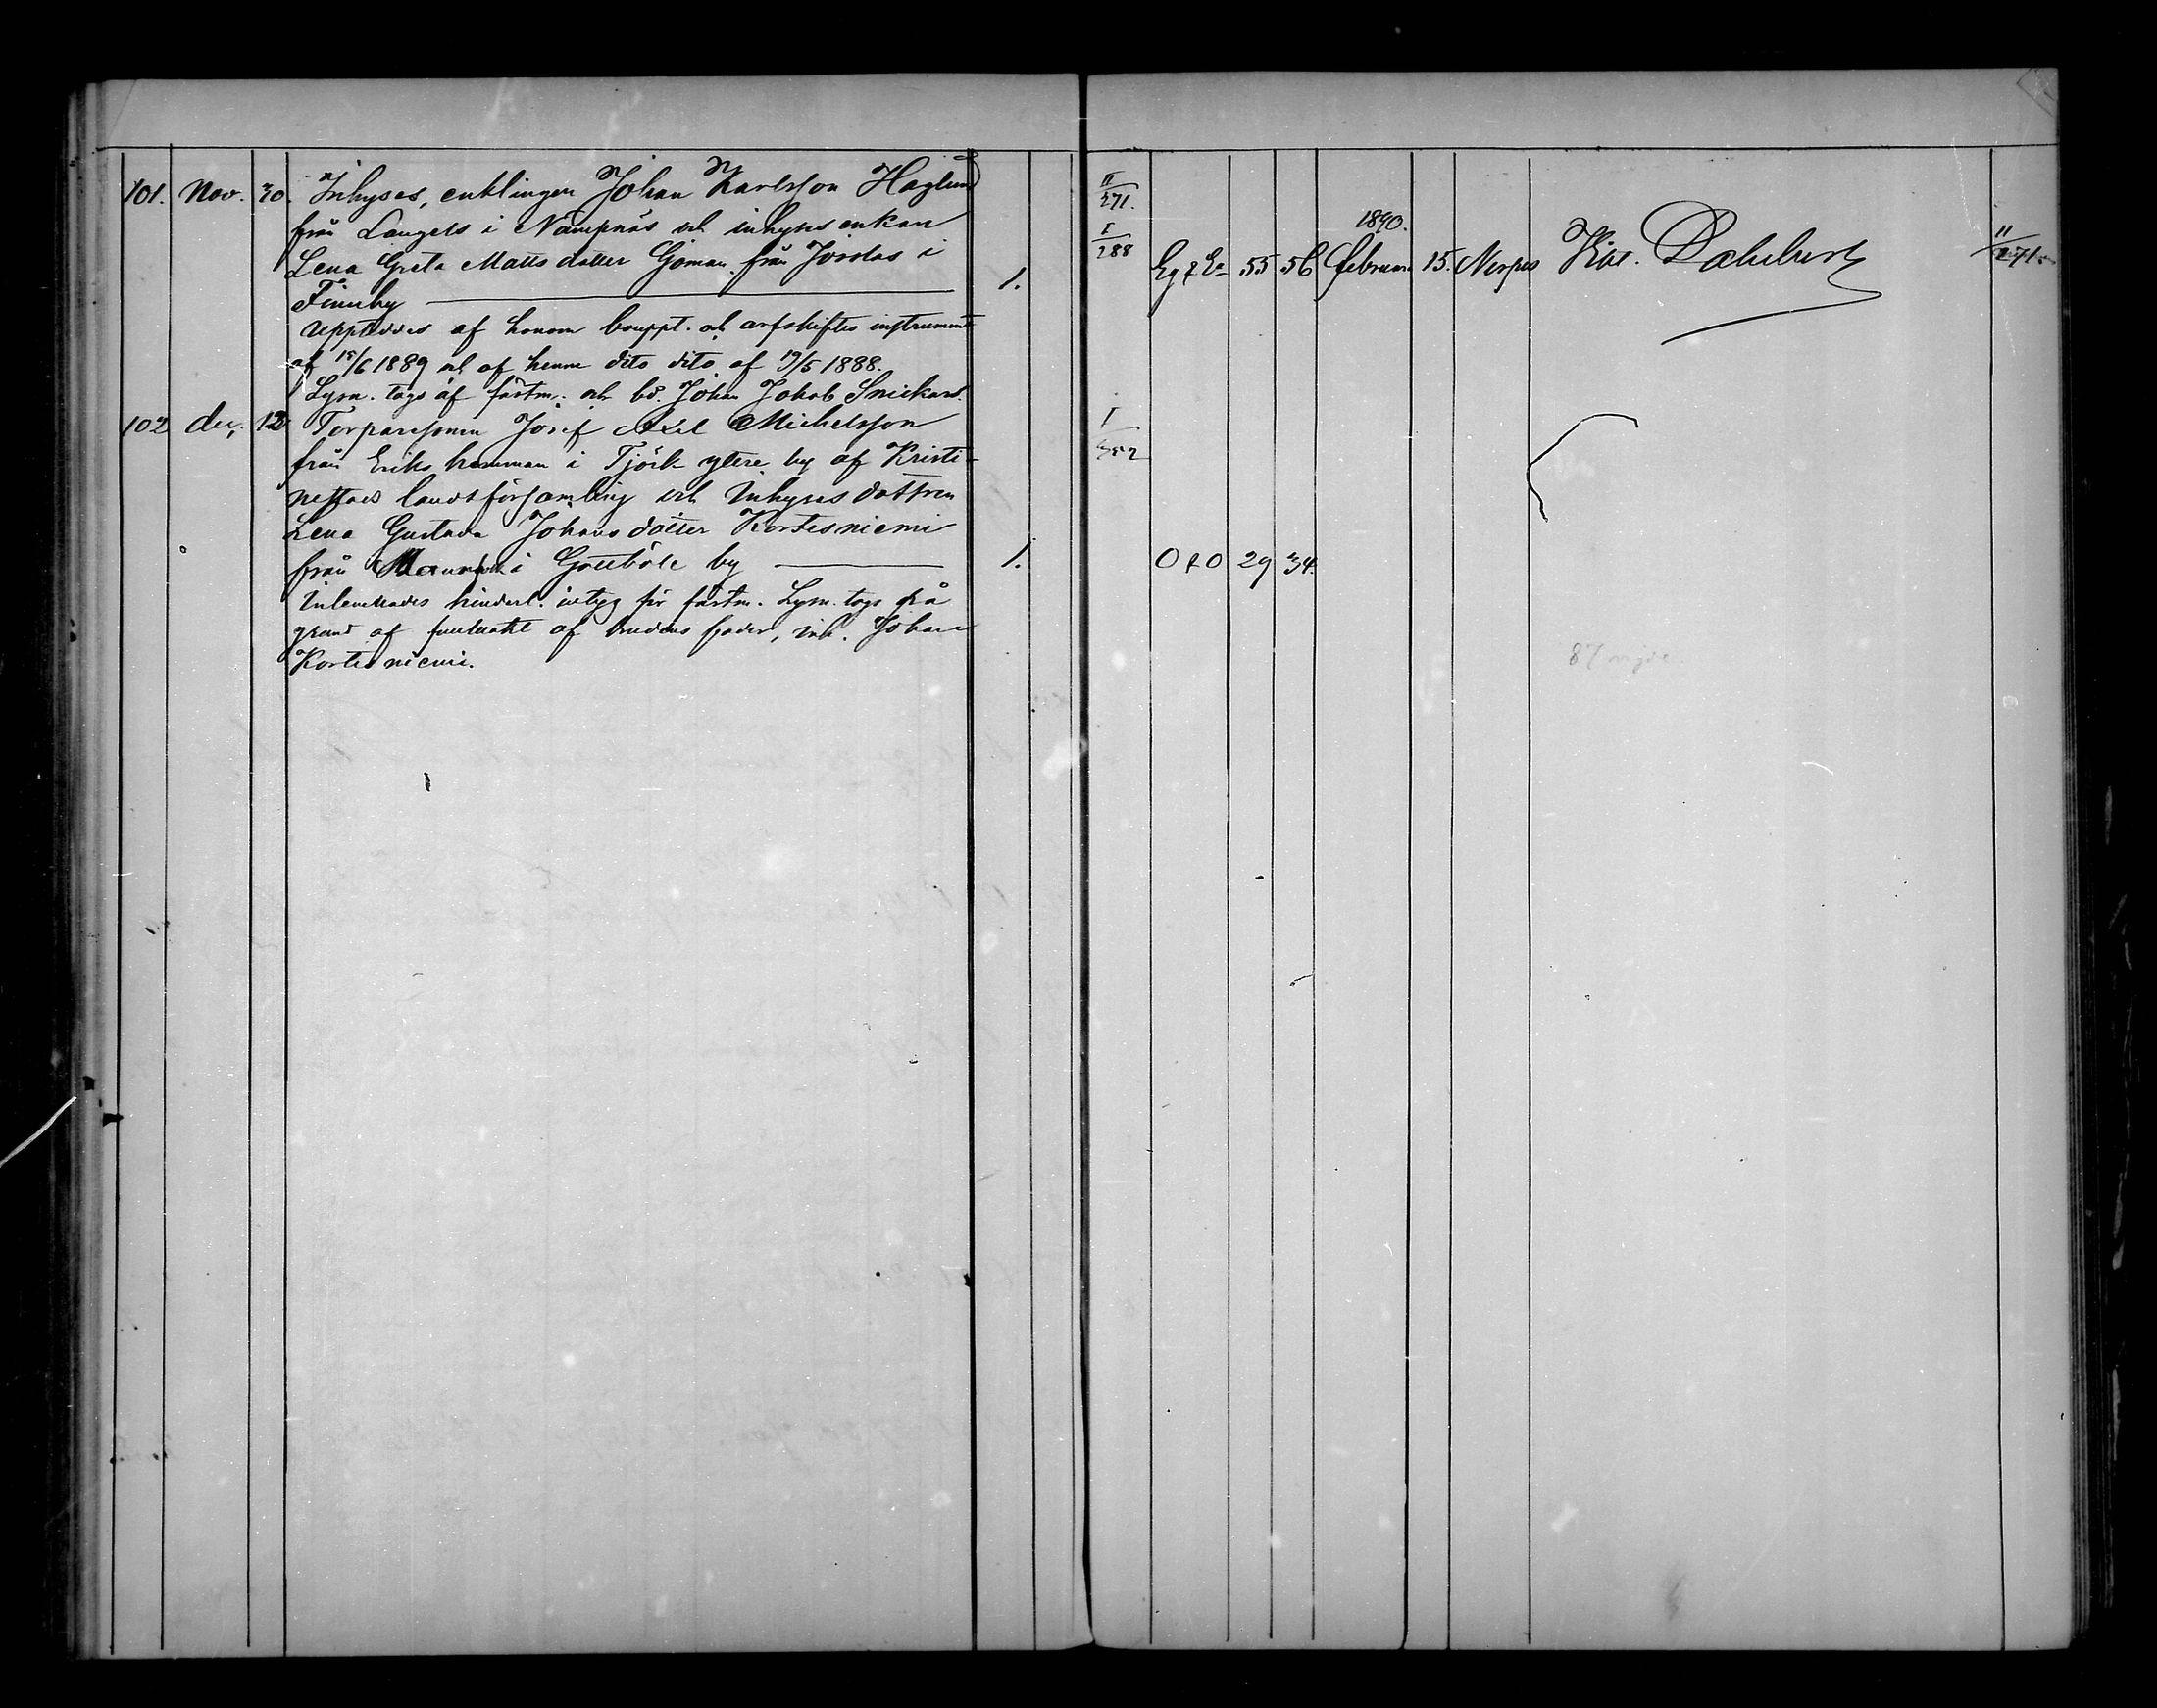 101. Nov. 30. Inhyses, enklingen Johan Karlsson Haglund
från Langels i Nämpnäs och inhyses enkan
Lena Greta Mattsdotter Göman från Jordas i
Finnby 1.
Uppteddes af honom bouppt. och arfskiftes instrument
af 15/6 1889 och af henne dito dito af 19/5 1888.
Lysn. togs af fästm. och bd. Johan Jakob Snickars.
102 dec. 12 Torparesonen Josef Axel Michelsson
från Eriks hemman i Tjöck ytere by af Kristi-
nestads landsförsamling och Inhyses dottren
Lena Gustava Johansdotter Kortesniemi
från i Gottböle by 1.
Inlemnades hinderl. intyg för fästm. Lysn. togs på
grund af fullmakt af brudens fader, inh. Johan
Kortesniemi.
II
271.
I
288
Eg & Ea 55 56 1890. Februari 15. Nerpes Kpl.
II
271.
I
O & O 29 34.
87